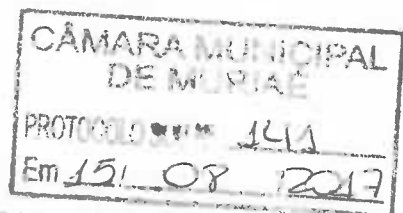 CÂMARA MUNICIPAL
DE MURIAÉ
PROTOCOLO 141
Em 15 / 08 / 2017